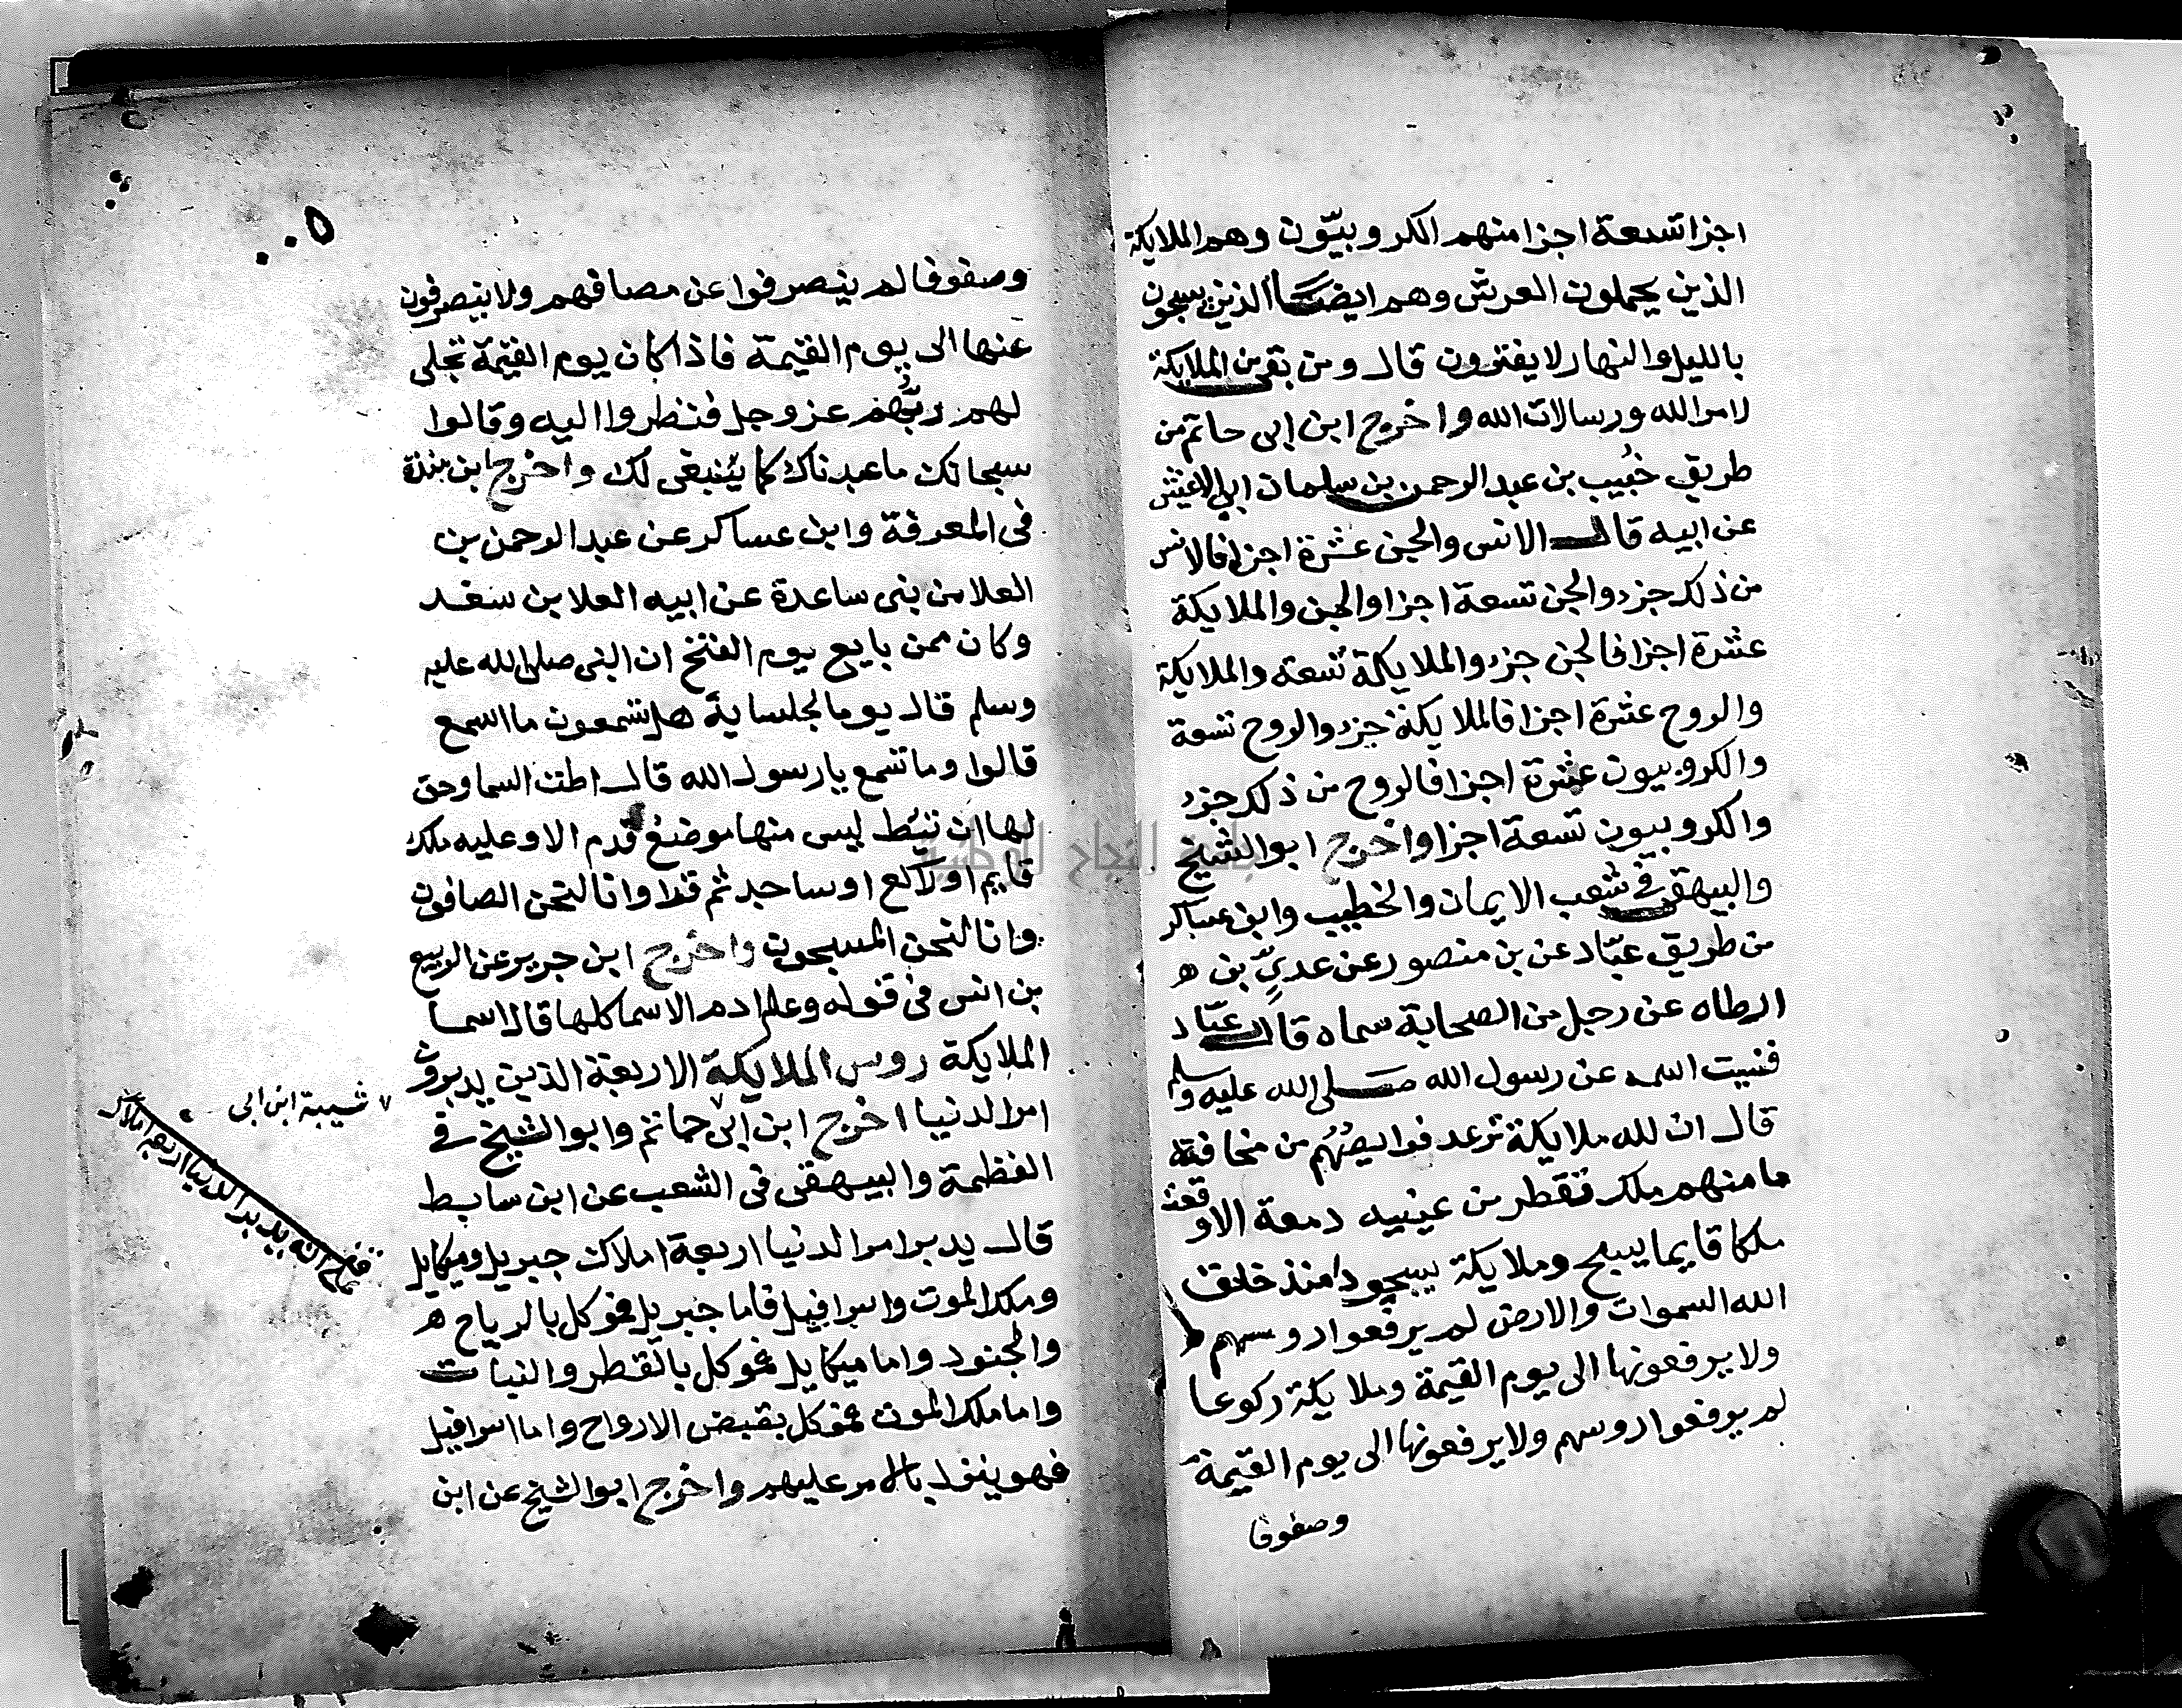 اجزا تسعة اجزا منهم الكروبيّون وهم الملايكة
الذين يحملون العرش وهم ايضا الذين يسبحون
بالليل والنهار لا يفترون قال ومن بقى من الملايكة
لامر الله ورسالات الله واخرج ابن ابى حاتم من
طريق خُبيب بن عبد الرحمن بن سلمان ابى الاعيش
عن ابيه قال الانس والجن عشرة اجزا فالانس
من ذلك جزء والجن تسعة اجزا والجن والملايكة
عشرة اجزا فالجن جزء والملايكة تسعة والملايكة
والروح عشرة اجزا فالملايكة جزء والروح تسعة
والكروبيون عشرة اجزا فالروح من ذلك جزء
والكروبيون تسعة اجزا واخرج ابو الشيخ
والبيهقى فى شعب الايمان والخطيب وابن عساكر
من طريق عبّاد عن بن منصور عن عديّ بن ه
ارطاه عن رجل من الصحابة سماه قال عبّاد
فنسيت اسمه عن رسول الله صلى الله عليه وسلم
قال ان لله ملايكة ترعد فرايصُهُم من مخافته
ما منهم ملك تقطر من عينيه دمعة الا وقعت
ملكا قايما يسبح وملايكة سجودا منذ خلق
الله السموات والارض لم يرفعوا روسهم
ولا يرفعونها الى يوم القيمة وملايكة ركوعا
لم يرفعوا روسهم ولا يرفعونها الى يوم القيمة
وصفوفا
وصفوفا لم ينصرفوا عن مصافهم ولا ينصرفون
عنها الى يوم القيمة فاذا كان يوم القيمة تجلى
لهم ربُّهم عز وجل فنظروا اليه وقالوا
سبحانك ما عبدناك كما ينبغى لك واخرج ابن مندة
فى المعرفة وابن عساكر عن عبد الرحمن بن
العلا من بنى ساعدة عن ابيه العلا بن سعد
وكان ممن بايع يوم الفتح ان النبى صلى الله عليه
وسلم قال يوما لجلسايه هل تسمعون ما اسمع
قالوا وما تسمع يا رسول الله قال اطت السما وحق
لها ان تئط ليس منها موضع قدم الا وعليه ملك
قايم او راكع او ساجد ثم قرا وانا لنحن الصافون
وانا لنحن المسبحون واخرج ابن جرير عن الربيع
بن انس فى قوله وعلم ادم الاسما كلها قال اسما
الملايكة روس الملايكة الاربعة الذين يدبرون
امر الدنيا اخرج ابن ابى حاتم وابو الشيخ فى
شيبة ابن ابى
العظمة والبيهقى فى الشعب عن ابن سابط
قال يدبر امر الدنيا اربعة املاك جبريل وميكايل
وملك الموت واسرافيل فاما جبريل فموكل بالرياح ه
والجنود واما ميكايل فموكل بالقطر والنبات
واما ملك الموت فموكل بقبض الارواح واما اسرافيل
فهو ينزل بالامر عليهم واخرج ابو الشيخ عن ابن
انه يدبر الدنيا اربع املاك